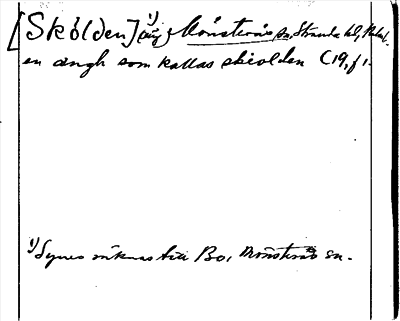 [Skölden] 1) äng, Mönsterås sn, Stranda hd, Kalm.
en ängh som kallas skiolden C19, f 1.
1) Synes räknas till Bo, Mönsterås sn.